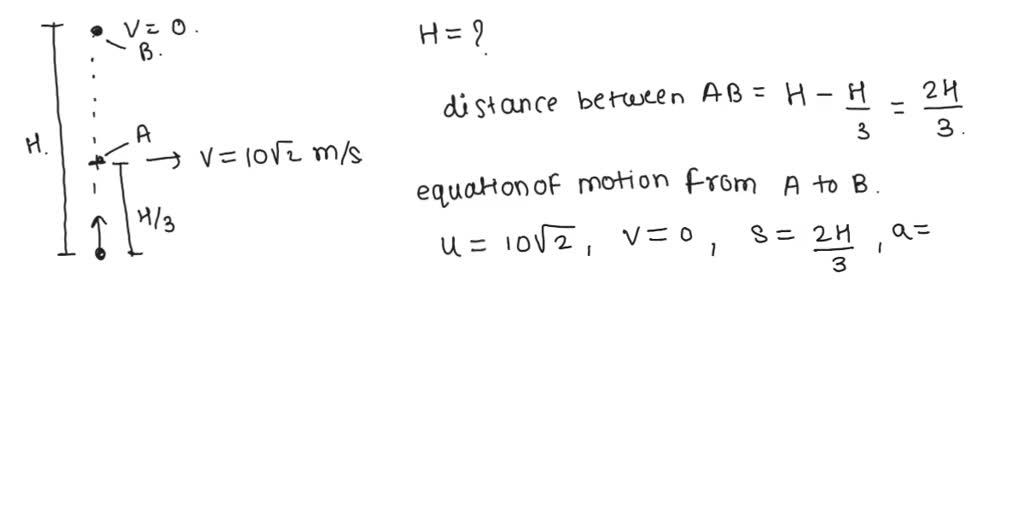 V = 0.
B.
H.
A
→ V = 10√2 m/s
H/3
H = ?
distance between AB = H - H/3 = 2H/3.
equation of motion from A to B.
u = 10√2, V = 0, S = 2H/3, a =